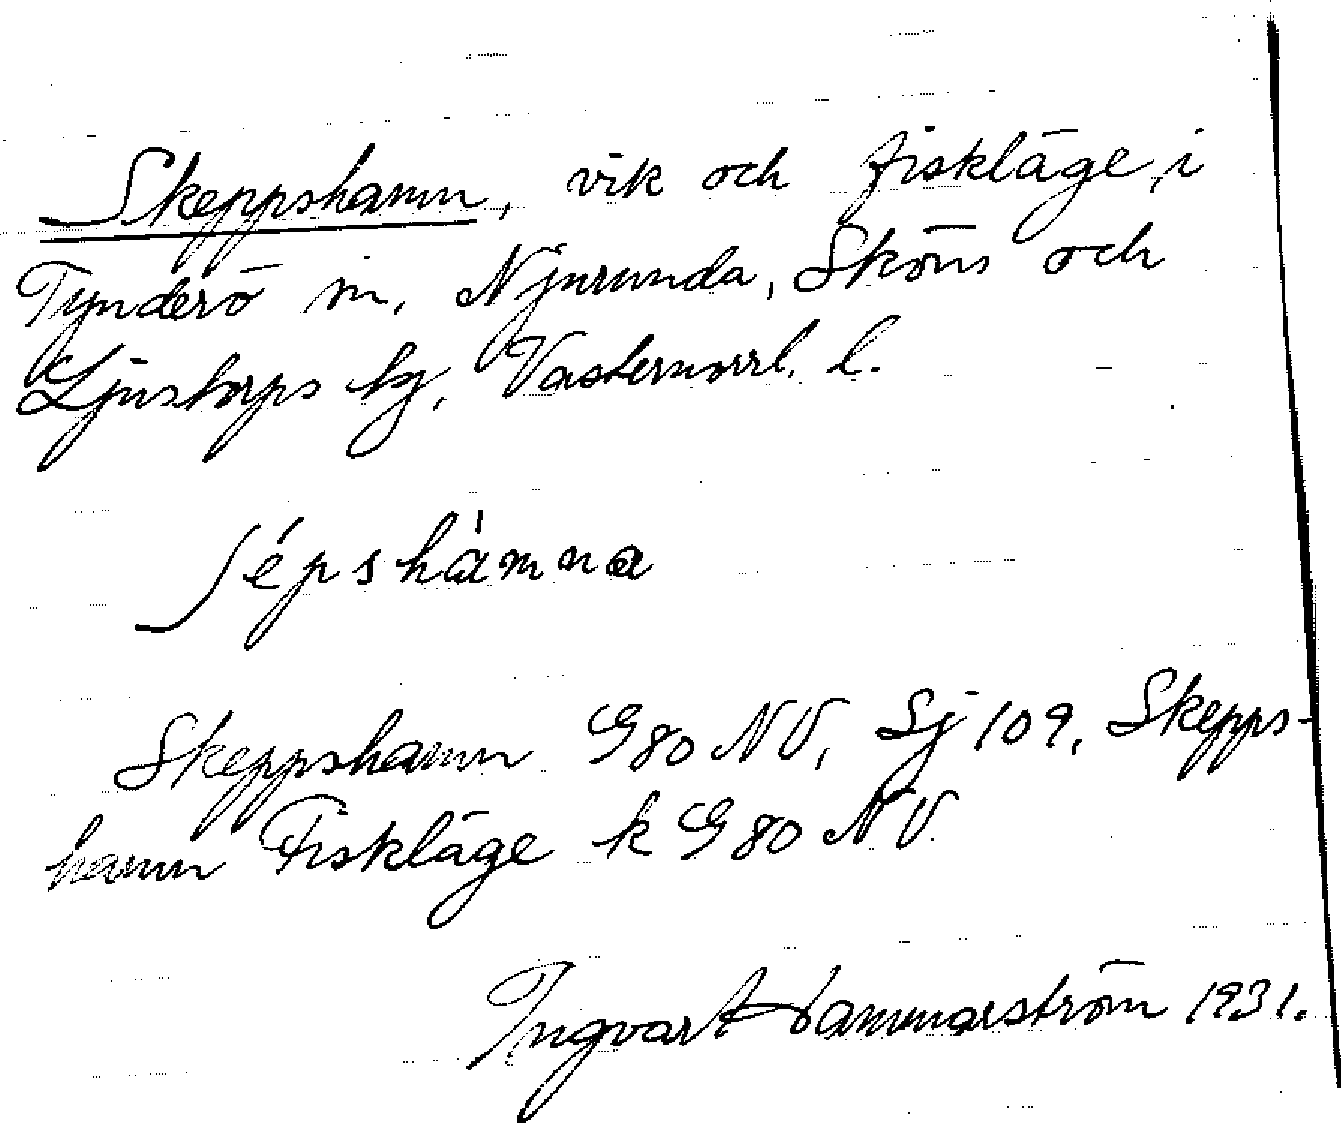 Skeppshamn, vik och fiskläge, i
Tynderö sn, Njurunda, Sköns och
Ljustorps tg, Västernorrl. l.
ʃépshàmna
Skeppshamn G80 NV, Sj 109, Skepps-
hamn Fiskläge k G80 NV.
Ingvar Hammarström 1931.